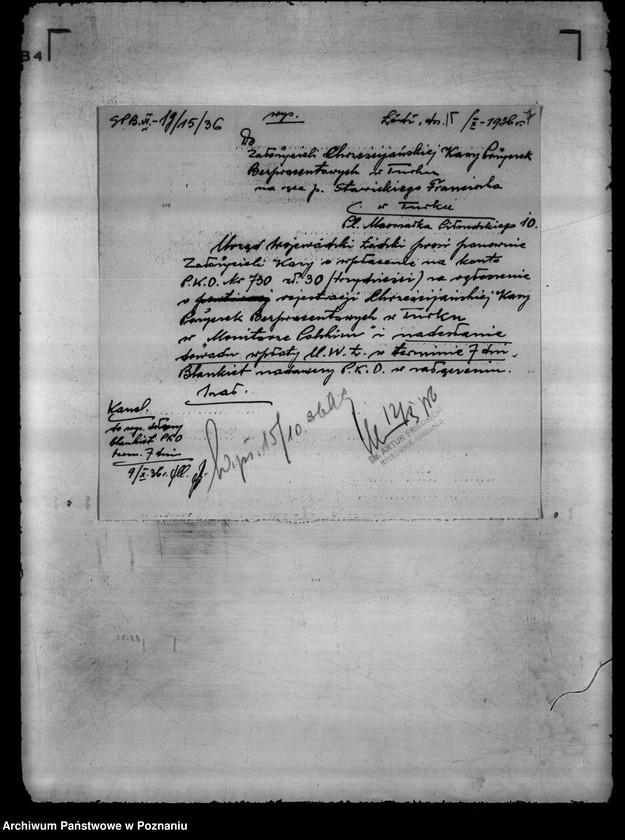 84
SPB.VI-19/15/36
wys.
Łódź, dn. 15/X-1936 r.
Do
Założycieli Chrześcijańskiej Kasy Pożyczek
Bezprocentowych w Turku
na ręce p. Stawickiego Franciszka
w Turku
Pl. Marszałka Piłsudskiego 10.
Urząd Wojewódzki Łódzki prosi ponownie
Założycieli Kasy o wpłacenie na konto
P.K.O. Nr 730 zł. 30 (trzydzieści) za ogłoszenie
o rejestracji Chrześcijańskiej Kasy
Pożyczek Bezprocentowych w Turku
w "Monitorze Polskim" i nadesłanie
dowodu wpłaty U.W.Ł. w terminie 7 dni.
Blankiet nadawczy P.K.O. w załączeniu.
Kanc.
do wys. dołączyć
blankiet PKO
term. 7 dni
9/X.36 r.
Wys. 15/10.36
12/X 36
Dr. ARTUR
Archiwum Państwowe w Poznaniu